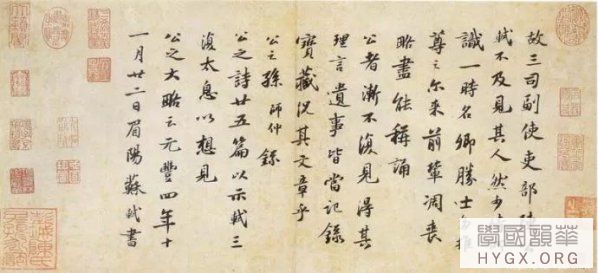 故三司副使吏部陳
軾不及見其人然少
識一時名卿勝士多推
尊之尔来前輩凋喪
略盡能稱誦
公者漸不復見得其
理言遺事皆當記錄
寶藏況其文章乎
公之孫師仲錄
公之詩廿五篇以示軾三
復太息以想見
公之大略云元豐四年十
一月廿二日眉陽蘇軾書
學國韻華
HYGX.ORG